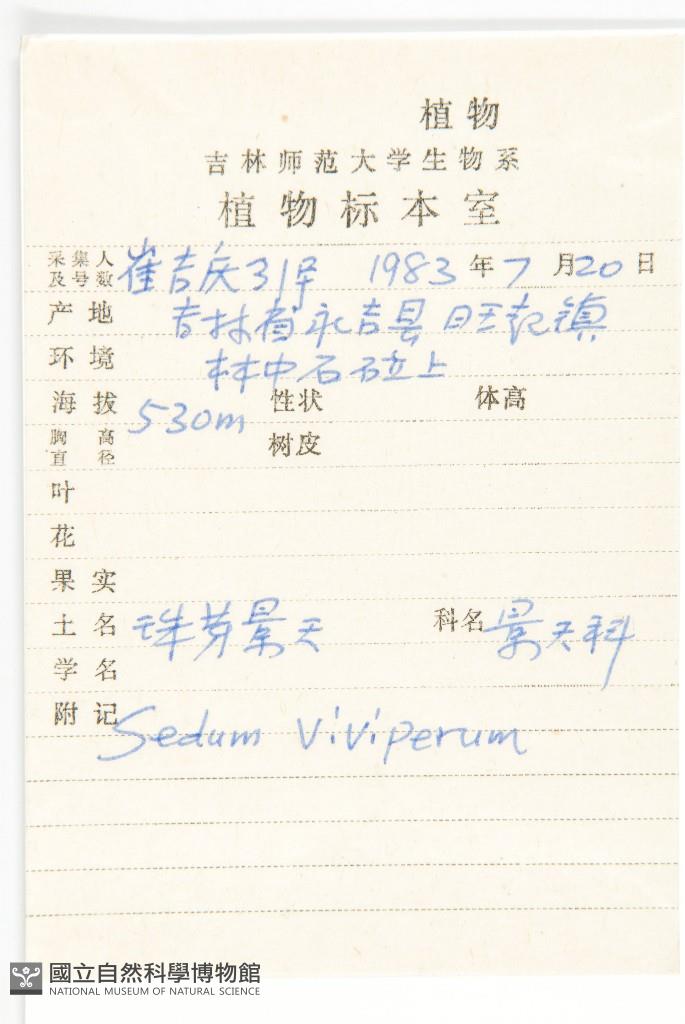 植物
吉林师范大学生物系
植物标本室
采集人及号数 崔吉庆 31号 1983年7月20日
产地 吉林省永吉县旺起镇
环境 林中石砬上
海拔 530m 性状 体高
胸高直径 树皮
叶
花
果实
土名 珠芽景天 科名 景天科
学名
附记 Sedum viviperum
國立自然科學博物館
NATIONAL MUSEUM OF NATURAL SCIENCE